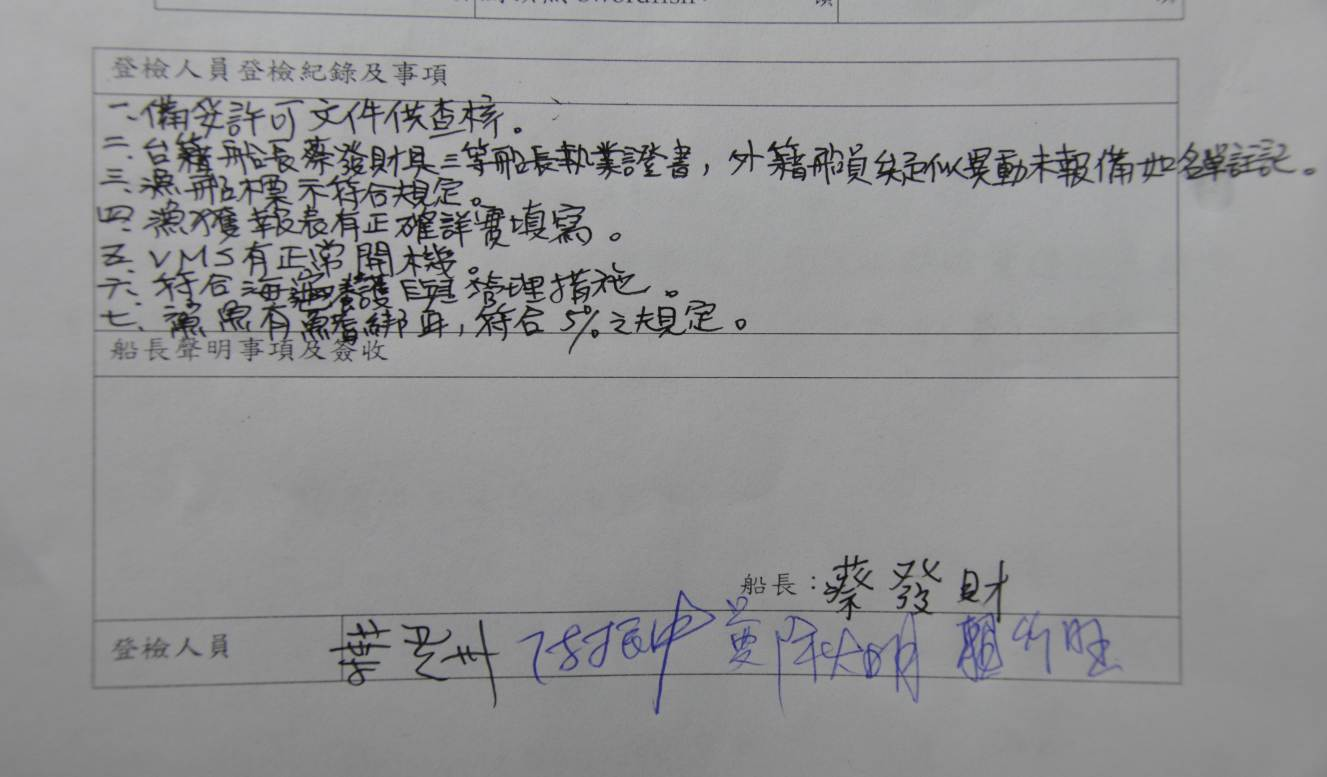 Swordfish
登檢人員登檢紀錄及事項
一、備妥許可文件供查核。
二、台籍船長蔡發財具三等船長執業證書,外籍船員疑似異動未報備如名單註記。
三、漁船標示符合規定。
四、漁獲報表有正確詳實填寫。
五、VMS有正常開機。
六、符合海 養護與管理措施。
七、鯊魚有 綁 ,符合5%之規定。
船長聲明事項及簽收
船長:蔡發財
登檢人員